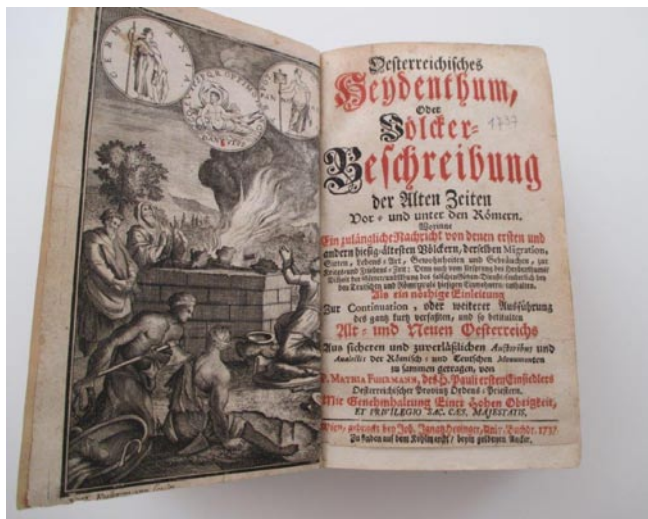 GERMANIA
Oesterreichisches
Heydenthum,
Oder
Völcker-
1737
Beschreibung
der Alten Zeiten
Vor- und unter den Römern.
Worinne
Ein zulängliche Nachricht von denen ersten und
andern hiesig-ältesten Völckern, derselben Migration,
Sitten, Lebens-Art, Gewohnheiten und Gebräuchen, zur
Kriegs- und Friedens-Zeit; Denn auch vom Ursprung des Heydenthums
den Teutschen und Römern als hiesigen Einwohnern enthalten.
Als ein nöthige Einleitung
Zur Continuation, oder weiterer Ausführung
des gantz kurtz verfaßten, und so betitulten
Alt- und Neuen Oesterreichs
Aus sicheren und zuverläßlichen Authoribus und
der Römisch- und Teutschen Monumenten
zusammen getragen, von
P. MATHIA FUHRMANN, des H. Pauli ersten Einsiedlers
Oesterreichischer Provintz Ordens-Priestern.
Mit Genehmhaltung Einer Hohen Obrigkeit,
ET PRIVILEGIO SAC. CÆS. MAJESTATIS.
Wien, gedruckt bey Joh. Ignatz Heyinger, Univ. Buchdr. 1737
Zu finden auf dem Kohlmarckt / beym goldenen Ancker.